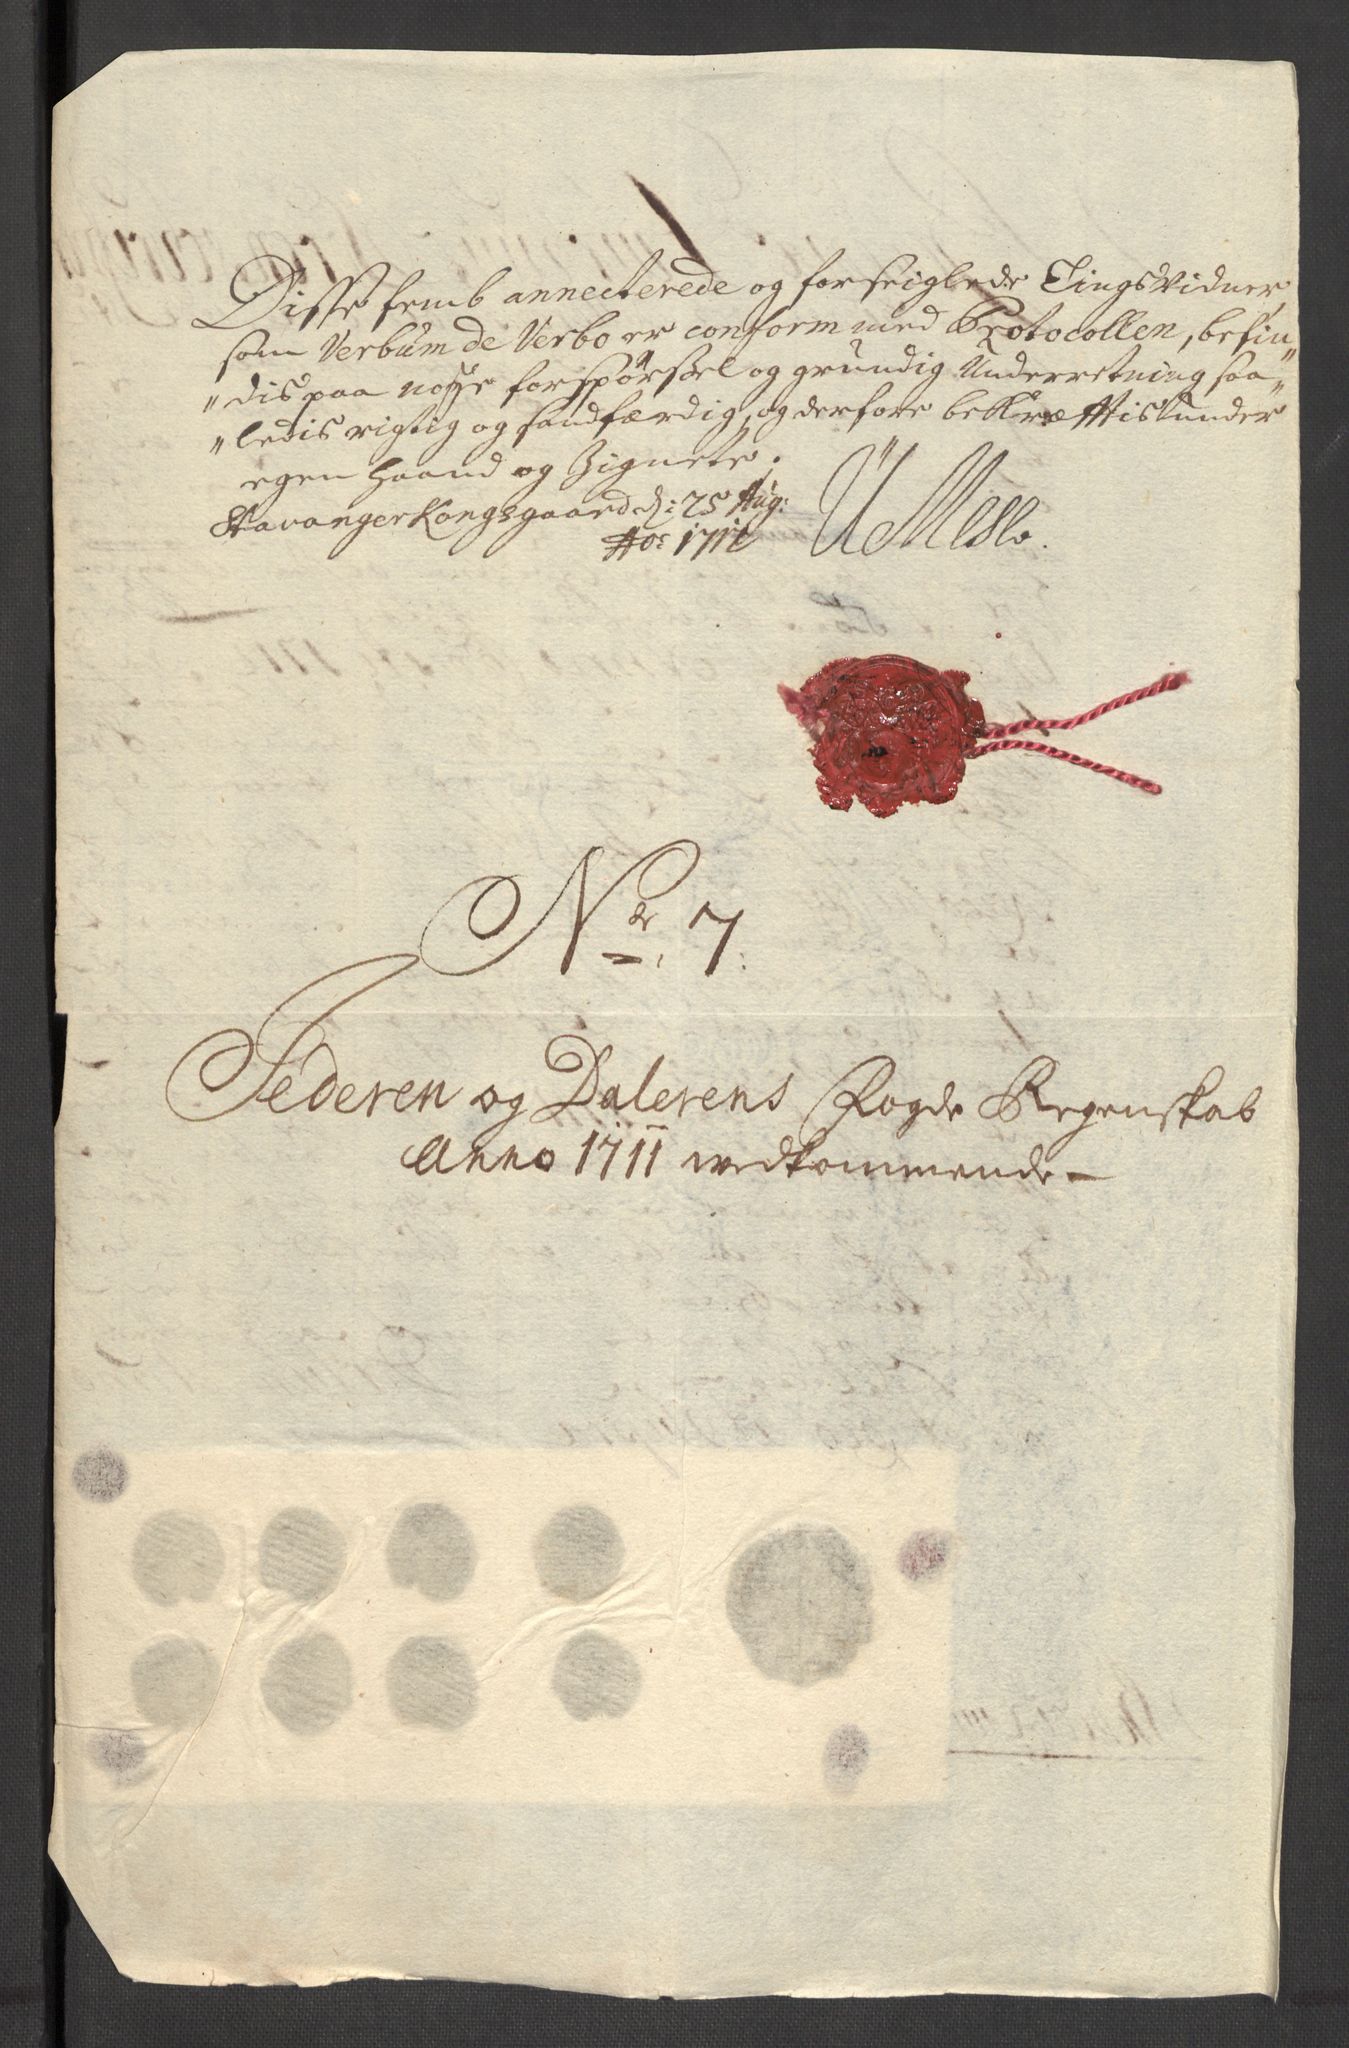 Disse femb annecterede og forseiglede Tings Vidner,
som Verbum de Verbo er conform med Protocollen, befin„
„dis paa nøye forspørsel og grundig Underretning saa„
„ledis rigtig og sandfærdig, og derfore bekræfftis under
egen haand og Zignete.
Stavanger Kongsgaard d: 25 Aug:
Ao: 1711
No 7.
Jederen og Dalerens Fogde Regenskab
Anno 1711 vedkommende